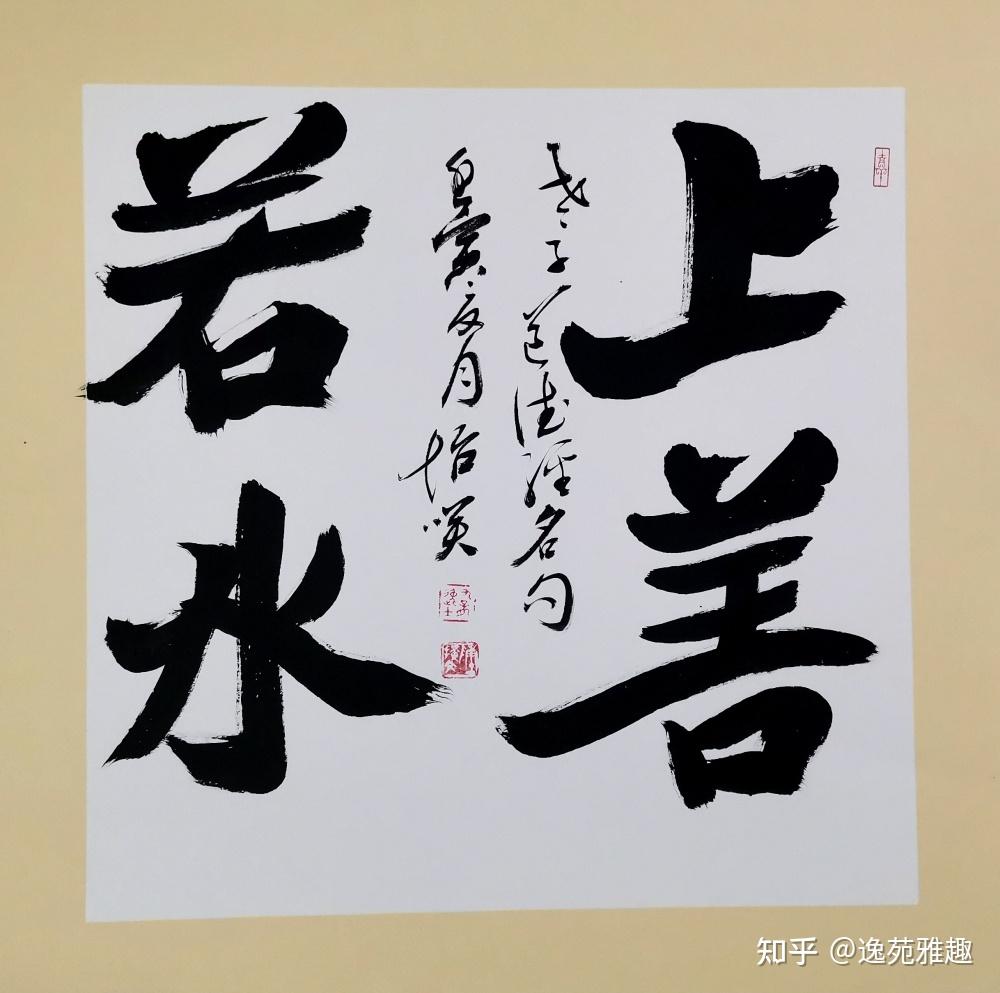 上善
若水
老子道德經名句
壬寅夏月怡咲
知乎 @逸苑雅趣